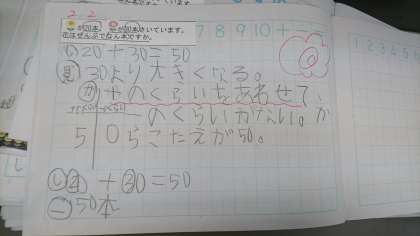 2-2
が20本、が30本さいています。
花はぜんぶでなん本ですか。
7 8 9 10 +
1 2 3 4 5 6
し 20+30=50
見 30より大きくなる。
か 十のくらいをあわせて、
一のくらいがない。か
5 0 らこたえが50。
し 20+30=50
一 50本